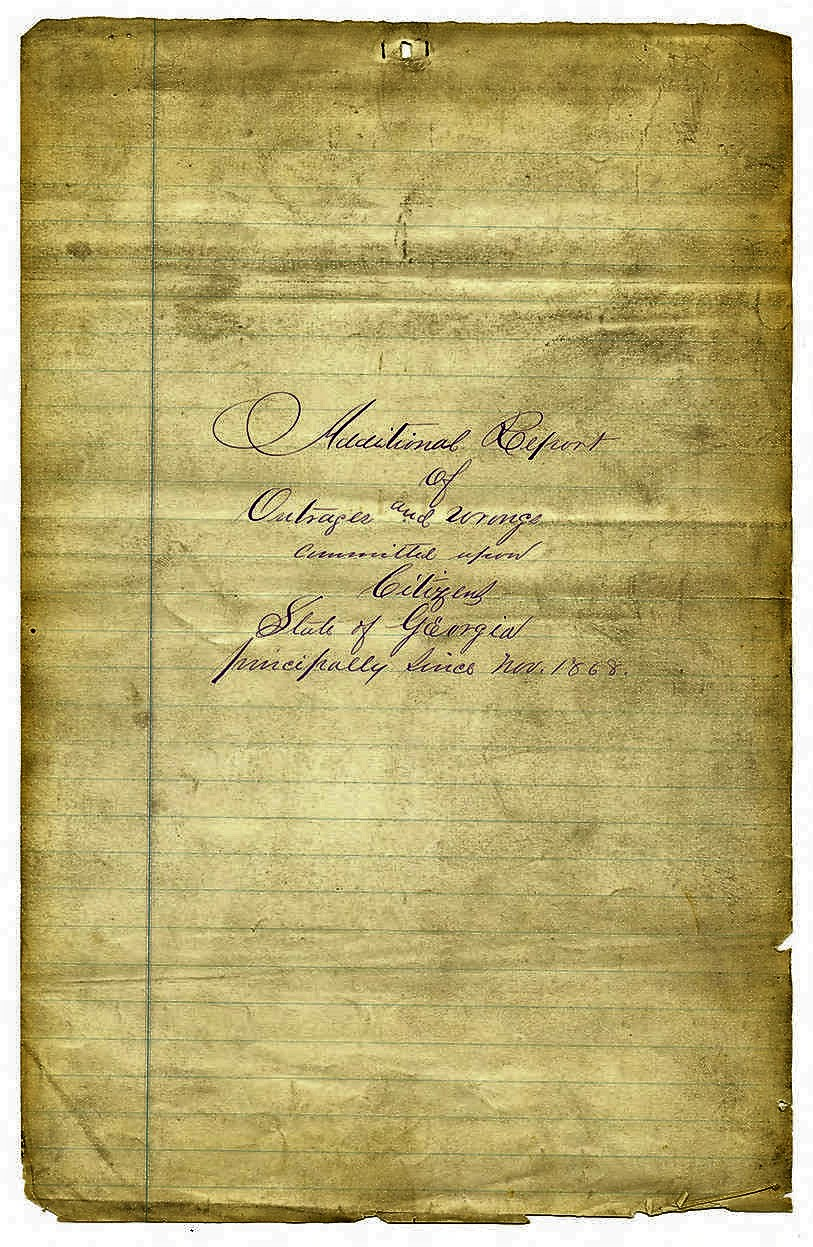 Additional Report
of
Outrages and wrongs
committed upon
Citizens
State of Georgia
principally since Nov. 1868.